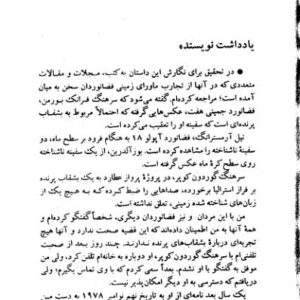 یادداشت نویسنده
• در تحقیق برای نگارش این داستان به کتب، مجلات و مقالات
متعددی که در آنها از تجارب ماورای زمینی فضانوردان سخن به میان
آمده است؛ مراجعه کرده‌ام. گفته می‌شود که سرهنگ فرانک بورمن،
فضانورد جمینی هفت، عکس‌هایی گرفته که احتمالاً مربوط به بشقاب
پرنده‌ای است که سفینه او را تعقیب می‌کرده است.
نیل آرمسترانگ، فضانورد آپولو ۱۸ به هنگام فرود بر سطح ماه، دو
سفینهٔ ناشناخته را مشاهده کرده است. بوزآلدرین، از یک سفینه ناشناخته
روی سطح کرهٔ ماه عکس گرفته است.
سرهنگ گوردون کوپر، در پروژهٔ پرواز عطارد به بشقاب پرنده
بر فراز استرالیا برخورده، صداهایی را ضبط کرده که به هیچ یک از
زبان‌های شناخته شده زمینی، تعلق نداشته است.
من با این مردان و نیز فضانوردان دیگری، شخصاً گفتگو کرده‌ام و
همهٔ آنها به من اطمینان داده‌اند که این قضیه صحت ندارد و آنها هیچ
تجربه‌ای دربارهٔ بشقاب‌های پرنده ندارند. چند روز بعد از صحبت
تلفنی‌ام با سرهنگ گوردون کوپر، او دوباره به خانه‌ام تلفن کرد، ولی من
موفق به گفتگو با او نشدم. بعداً سعی کردم که با وی تماس بگیرم؛ ولی
دسترسی به او دیگر امکان‌پذیر نیست.
یک سال بعد نامه‌ای از او به تاریخ نهم نوامبر ۱۹۷۸ به دست من